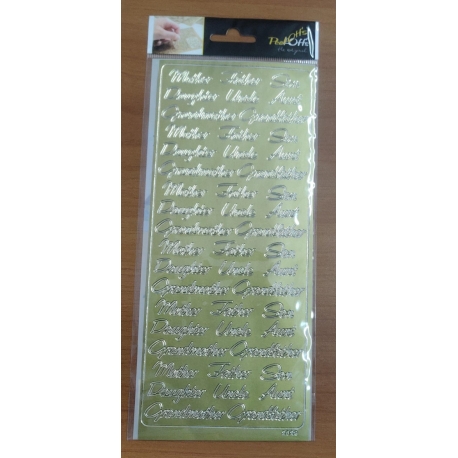 Peel Offs
Mother Father Son
Daughter Uncle Aunt
Grandmother Grandfather
Mother Father Son
Daughter Uncle Aunt
Grandmother Grandfather
Mother Father Son
Daughter Uncle Aunt
Grandmother Grandfather
Mother Father Son
Daughter Uncle Aunt
Grandmother Grandfather
Mother Father Son
Daughter Uncle Aunt
Grandmother Grandfather
Mother Father Son
Daughter Uncle Aunt
Grandmother Grandfather